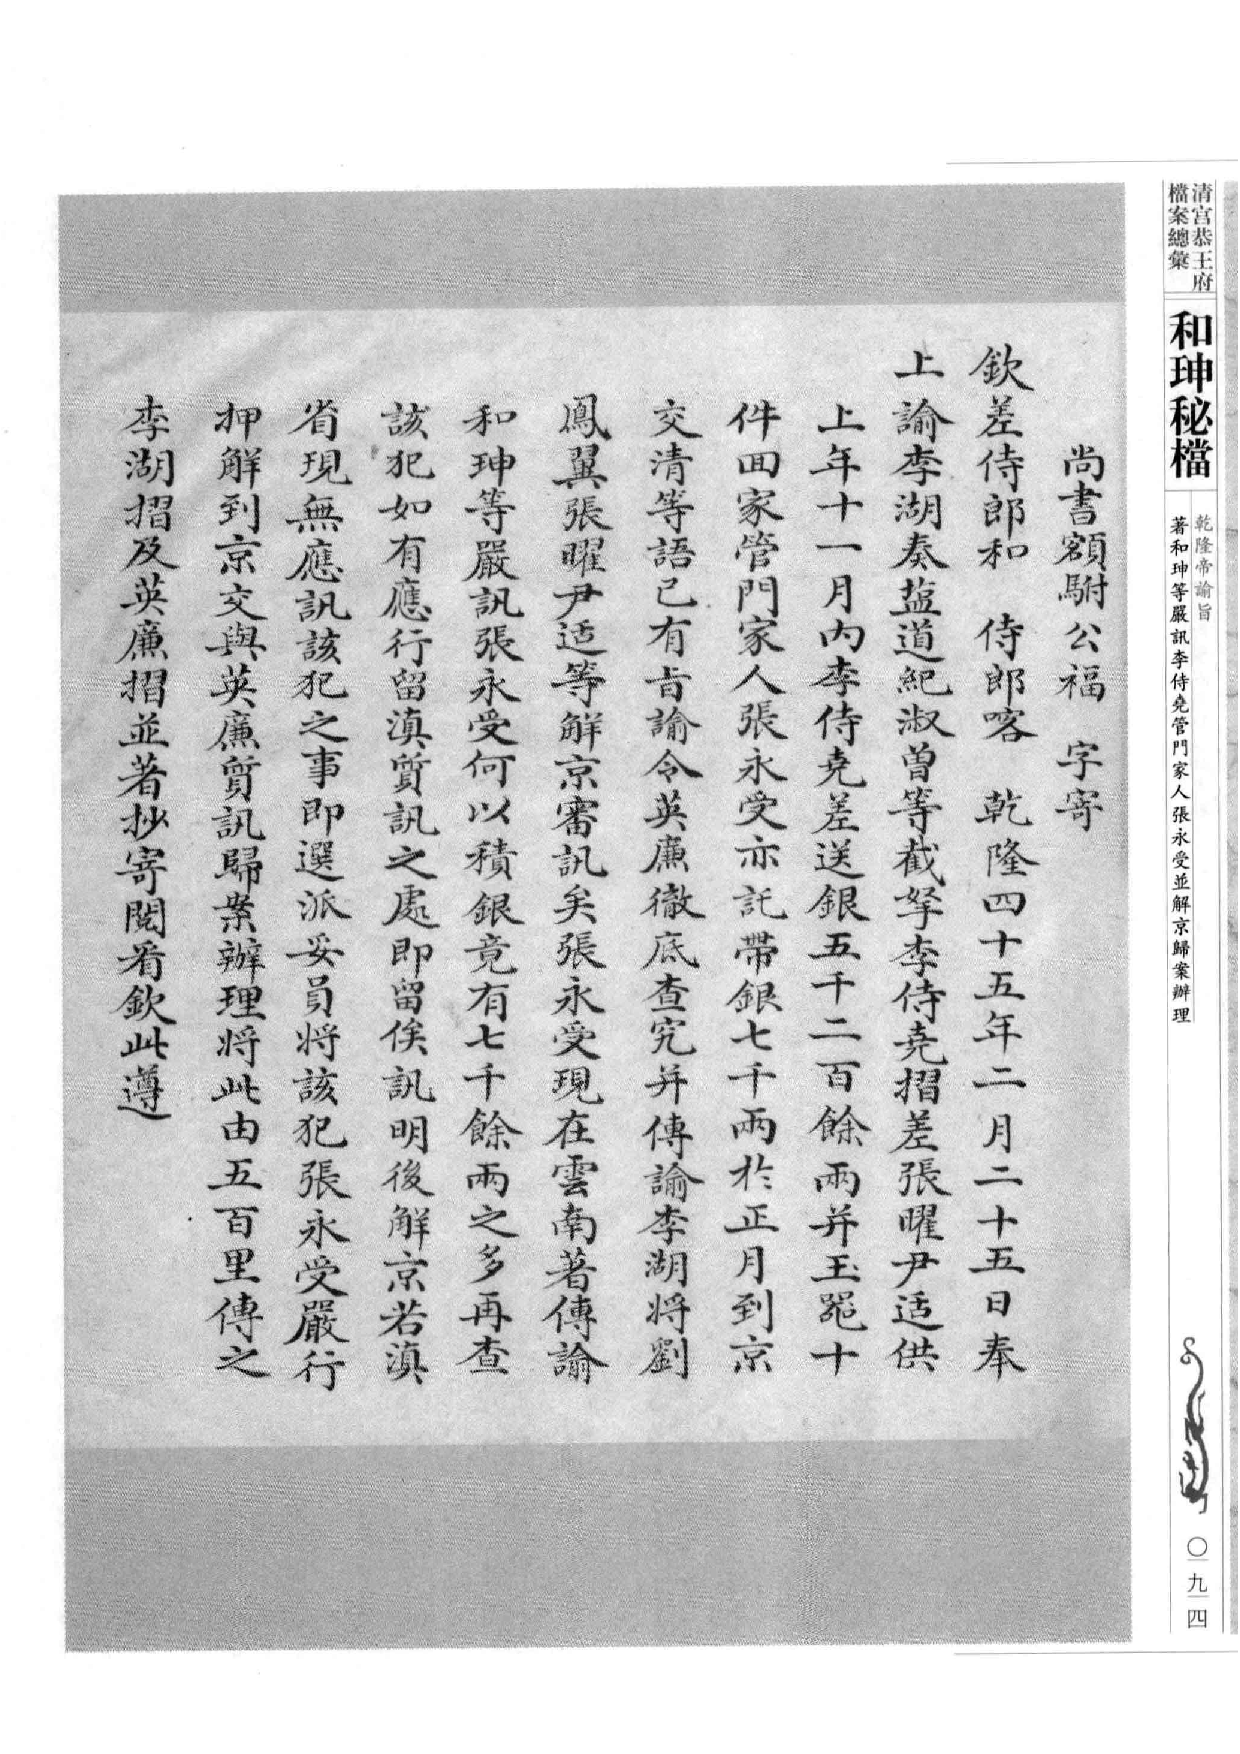 清宮恭王府
檔案總彙
和珅秘檔
乾隆帝諭旨
著和珅等嚴訊李侍堯管門家人張永受並解京歸案辦理
〇九四
尚書額駙公福　字寄
欽差侍郎和　侍郎喀　乾隆四十五年二月二十五日奉
上諭李湖奏鹽道紀淑曾等截拏李侍堯摺差張曜尹适供
上年十一月內李侍堯差送銀五千二百餘兩并玉器十
件回家管門家人張永受亦託帶銀七千兩於正月到京
交清等語已有旨諭令英廉徹底查究并傳諭李湖將劉
鳳翼張曜尹适等解京審訊矣張永受現在雲南著傳諭
和珅等嚴訊張永受何以積銀竟有七千餘兩之多再查
該犯如有應行留滇質訊之處即留俟訊明後解京若滇
省現無應訊該犯之事即選派妥員將該犯張永受嚴行
押解到京交與英廉質訊歸案辦理將此由五百里傳之
李湖摺及英廉摺並著抄寄閱看欽此遵